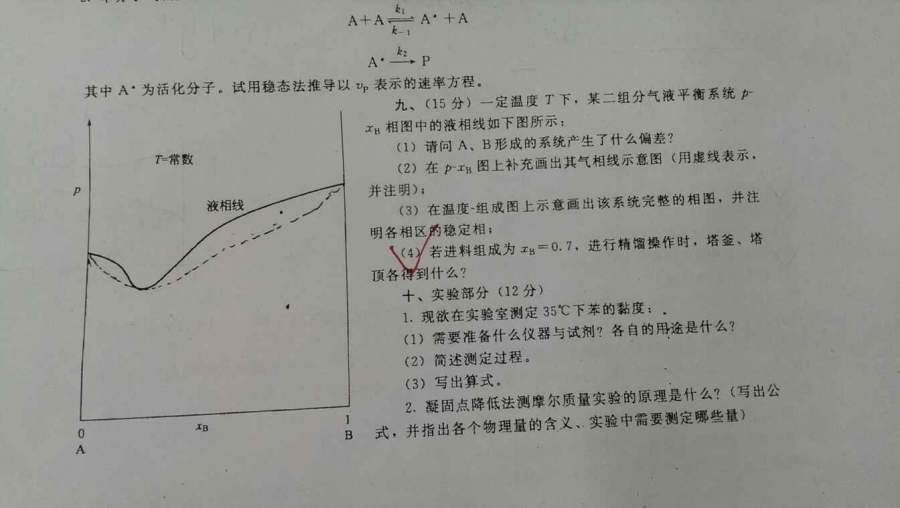 A+A k₁ ⇌ k₋₁ A* +A
A* k₂ → P
其中 A* 为活化分子。试用稳态法推导以 vP 表示的速率方程。
九、(15 分) 一定温度 T 下，某二组分气液平衡系统 p-
xB 相图中的液相线如下图所示：
(1) 请问 A、B形成的系统产生了什么偏差？
(2) 在 p-xB 图上补充画出其气相线示意图 (用虚线表示，
并注明)；
(3) 在温度-组成图上示意画出该系统完整的相图，并注
明各相区的稳定相；
(4) 若进料组成为 xB=0.7，进行精馏操作时，塔釜、塔
顶各得到什么？
十、实验部分 (12 分)
1. 现欲在实验室测定 35℃下苯的黏度：
(1) 需要准备什么仪器与试剂？各自的用途是什么？
(2) 简述测定过程。
(3) 写出算式。
2. 凝固点降低法测摩尔质量实验的原理是什么？(写出公
式，并指出各个物理量的含义、实验中需要测定哪些量)
T=常数
p
液相线
0 xB 1
A B